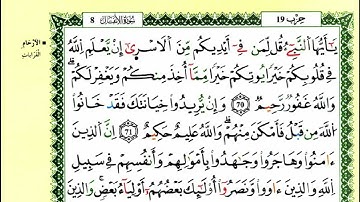 حِزْبُ 19
سُورَةُ الْأَنْفَالِ 8
يَٰٓأَيُّهَا النَّبِيُّ قُل لِّمَن فِىٓ أَيْدِيكُم مِّنَ الْأَسْرَىٰٓ إِنْ يَّعْلَمِ اللَّهُ
فِى قُلُوبِكُمْ خَيْرًا يُوتِكُمْ خَيْرًا مِّمَّآ أُخِذَ مِنكُمْ وَيَغْفِرْ لَكُمْ
وَاللَّهُ غَفُورٌ رَّحِيمٌ 70 وَإِنْ يُّرِيدُوا خِيَانَتَكَ فَقَدْ خَانُوا
اللَّهَ مِن قَبْلُ فَأَمْكَنَ مِنْهُمْ وَاللَّهُ عَلِيمٌ حَكِيمٌ 71 إِنَّ الَّذِينَ
ءَامَنُوا وَهَاجَرُوا وَجَٰهَدُوا بِأَمْوَٰلِهِمْ وَأَنفُسِهِمْ فِى سَبِيلِ
اللَّهِ وَالَّذِينَ ءَاوَوا وَّنَصَرُوٓا أُوْلَٰٓئِكَ بَعْضُهُمْ أَوْلِيَآءُ بَعْضٍ وَالَّذِينَ